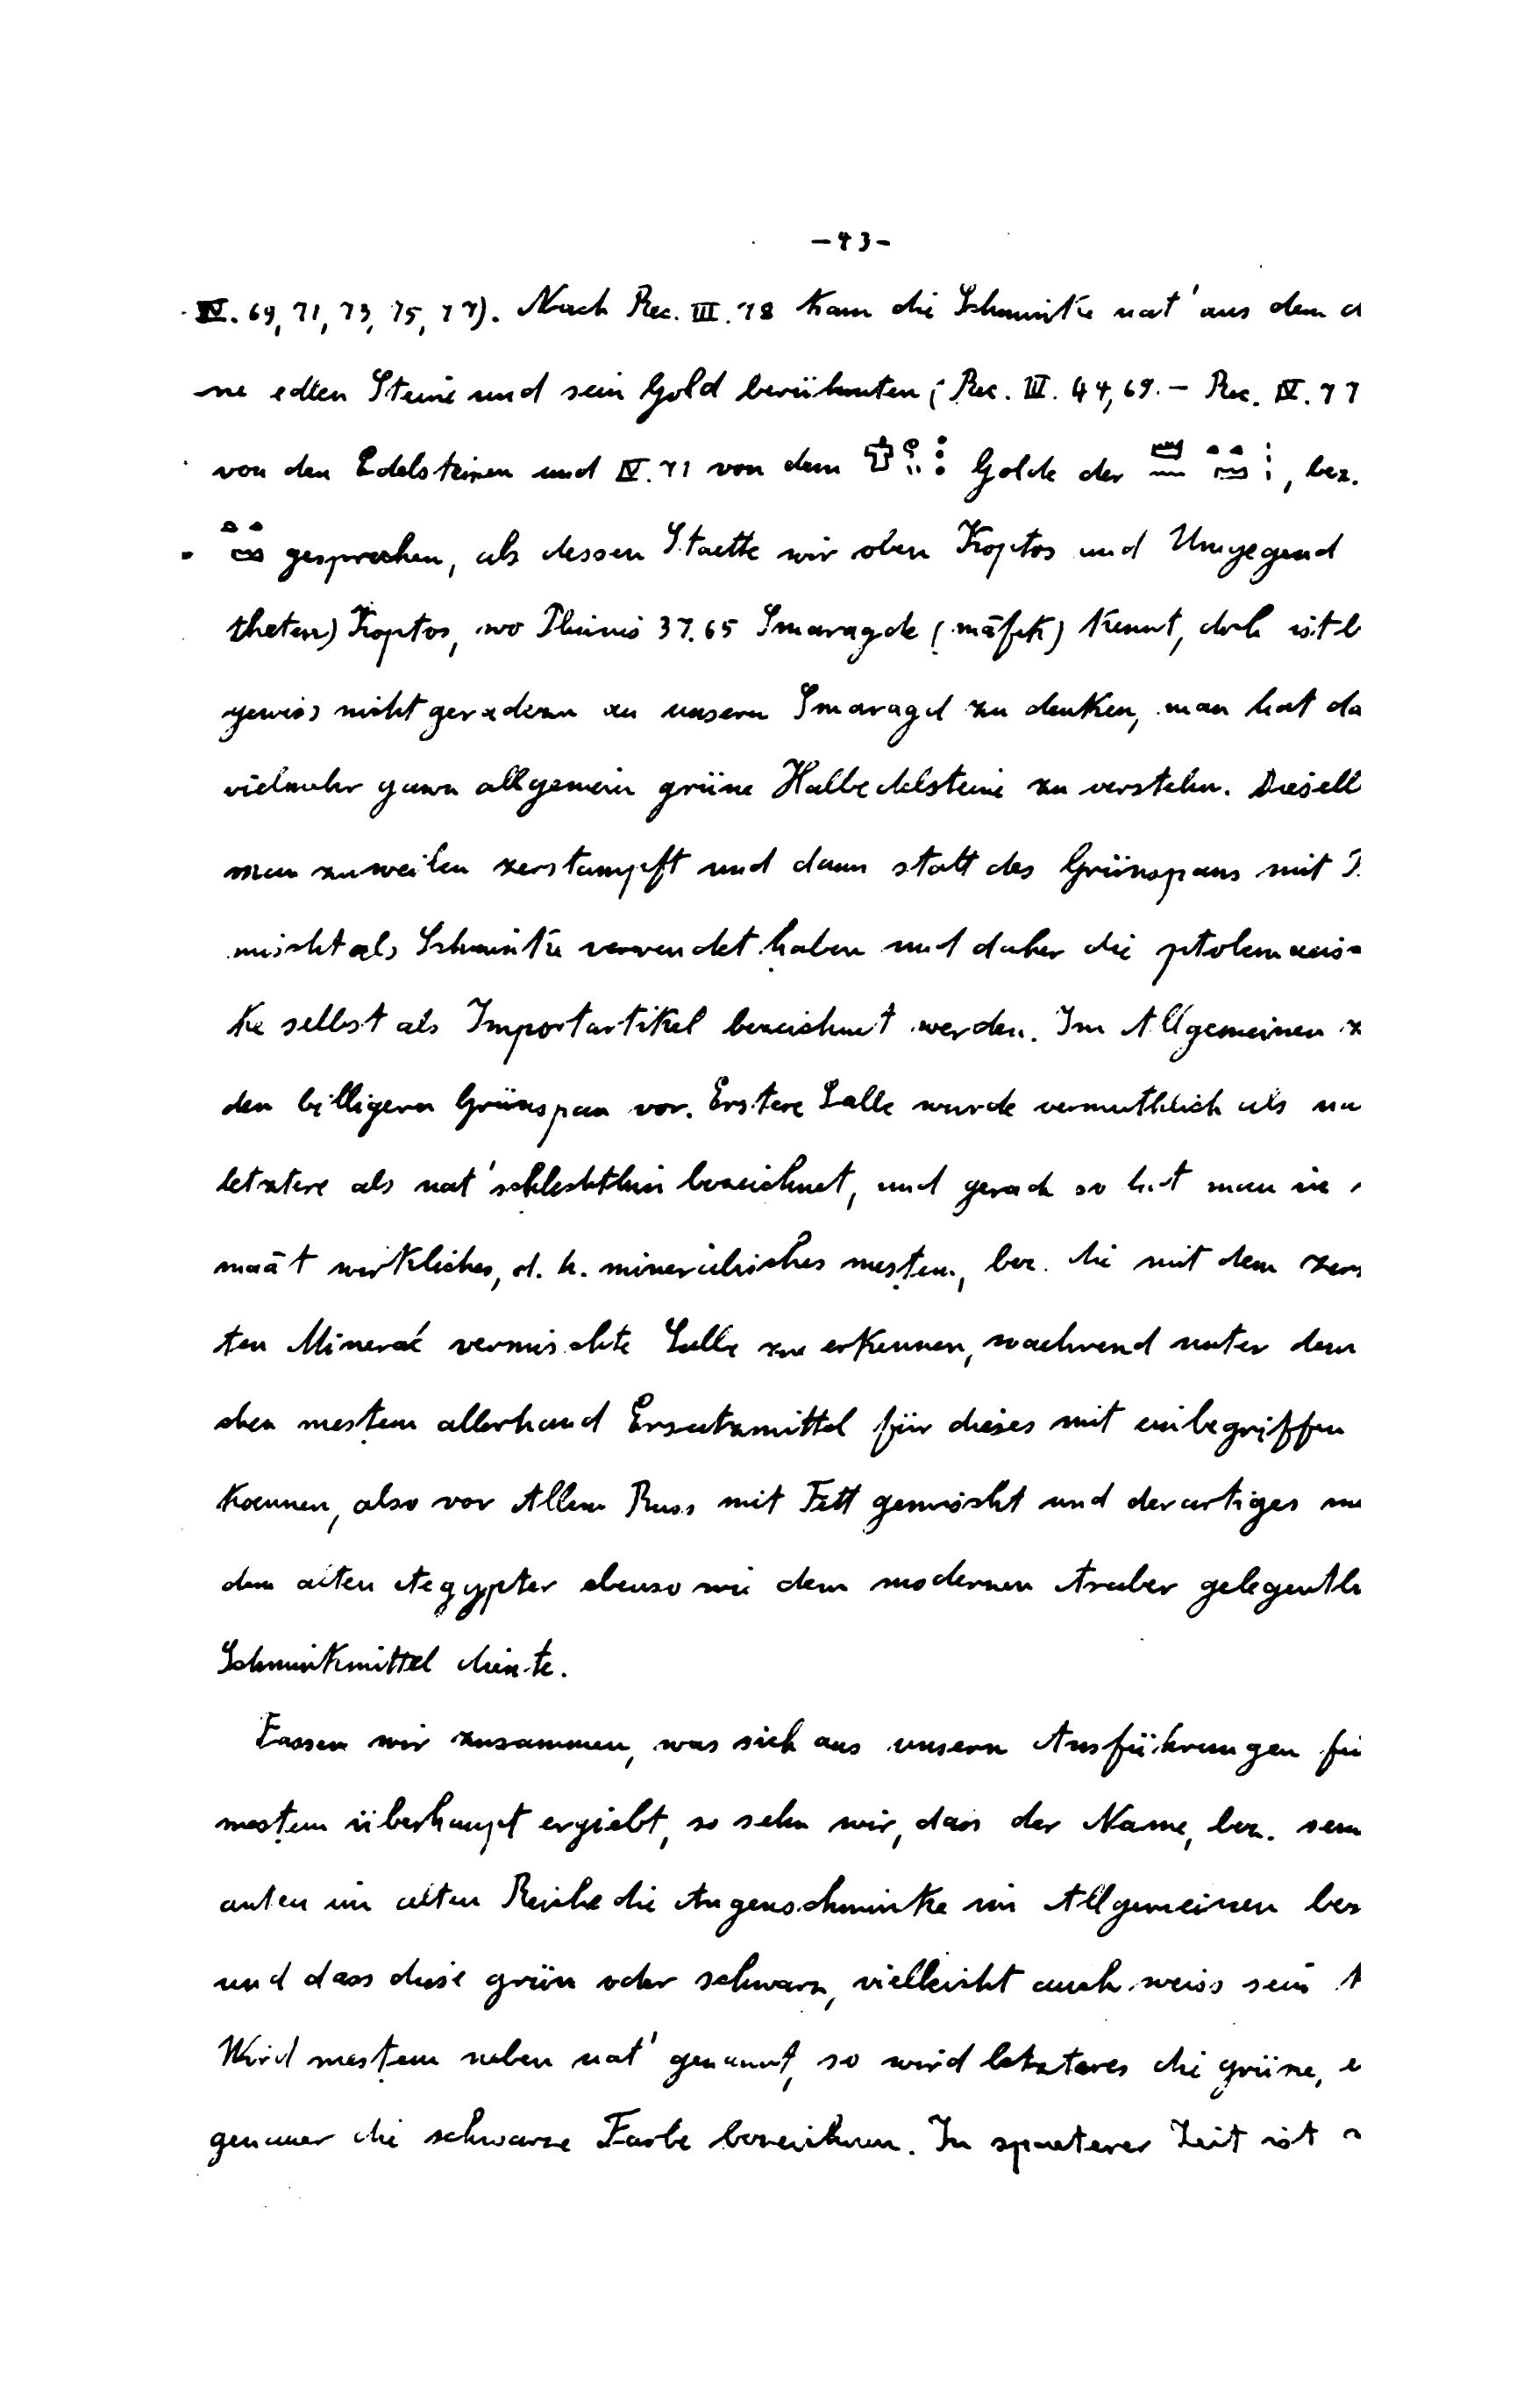 -43-
IV. 69, 71, 73, 75, 77). Nach Rec. III. 78 kam die Schminke uat' aus dem
ne edlen Steine und sein Gold berühmten; Rec. III. 44, 69. – Rec. IV. 77
von den Edelsteinen und IV. 71 von dem Golde der , bez.
gesprochen, als dessen Staette wir oben Koptos und Umgegend
theten) Koptos, wo Plinius 37.65 Smaragde (māfek) kennt, doch ist
gewiss nicht geradezu an unsern Smaragd zu denken, man hat da
vielmehr ganz allgemein grüne Halbedelsteine zu verstehn. Diesell
man zuweilen zerstampft und dann statt des Grünspans mit
mischt als Schminke verwendet haben und daher die ptolemaeis-
ke selbst als Importartikel bezeichnet werden. Im Allgemeinen z
den billigern Grünspan vor. Erstere Salbe wurde vermuthlich als ua
letztere als uat' schlechthin bezeichnet, und gerade so hat man in
maāt wirkliches, d. h. mineralisches mesṭem, bez. die mit dem zers
ten Mineral vermischte Salbe zu erkennen, waehrend unter dem
chen mesṭem allerhand Ersatzmittel für dieses mit einbegriffen
koennen, also vor Allem Russ mit Fett gemischt und derartiges
dem alten Aegypter ebenso wie dem modernen Araber gelegentli
Schminkmittel diente.
Fassen wir zusammen, was sich aus unsern Ausführungen fü
mesṭem überhaupt ergiebt, so sehn wir, dass der Name, bez. sein
anten im alten Reiche die Augenschminke im Allgemeinen bez
und dass diese grün oder schwarz, vielleicht auch weiss sein k
Wird mesṭem neben uat' genannt, so wird letzteres die grüne, e
genauer die schwarze Farbe bezeichnen. In spaeterer Zeit ist